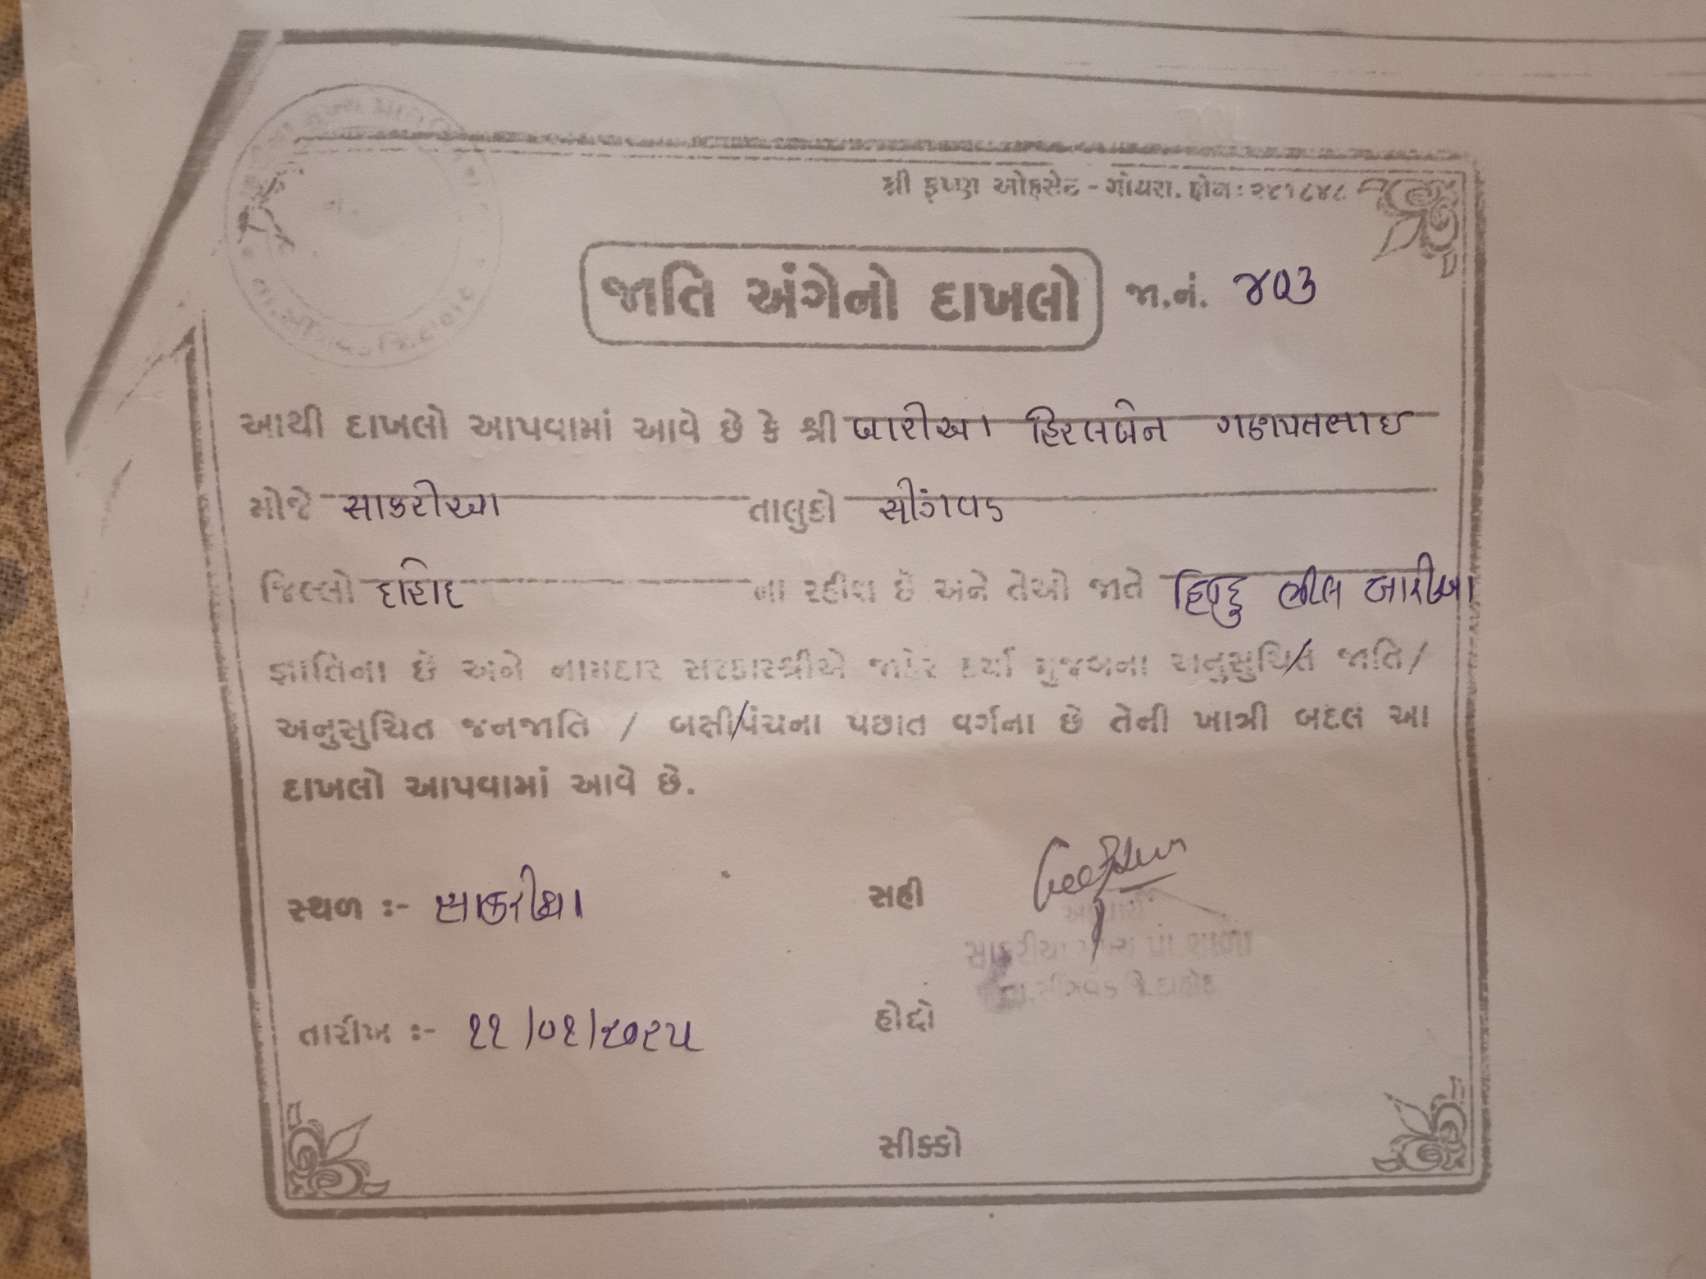 શ્રી કૃષ્ણ ઓફસેટ - ગોધરા. ફોન : ૨૪૧૮૪૮
જાતિ અંગેનો દાખલો જા.નં. ૪૦૩
આથી દાખલો આપવામાં આવે છે કે શ્રી બારીઆ હિરલબેન ગણપતભાઇ
મોજે સાકરીઆ તાલુકો સીંગવડ
જિલ્લો દાહોદ ના રહીશ છે અને તેઓ જાતે હિન્દુ ભીલ બારીઆ
જ્ઞાતિના છે અને નામદાર સરકારશ્રીએ જાહેર કર્યા મુજબના અનુસુચિત જાતિ /
અનુસુચિત જનજાતિ / બક્ષીપંચના પછાત વર્ગના છે તેની ખાત્રી બદલ આ
દાખલો આપવામાં આવે છે.
સ્થળ :- સાકરીઆ સહી
સાકરીઆ શાળા
સીંગવડ જિ.દાહોદ
તારીખ :- ૧૧/૦૧/૨૦૨૫ હોદ્દો
સીક્કો